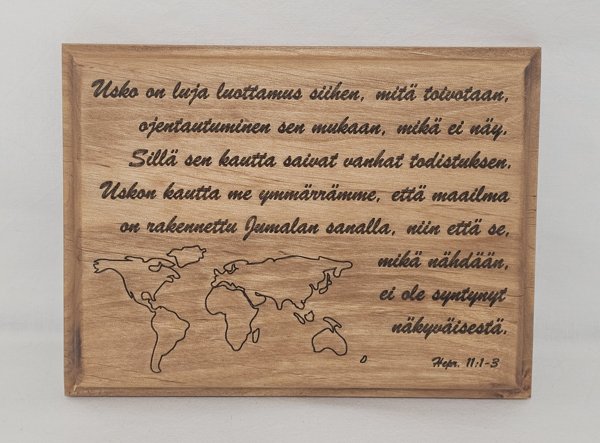 Usko on luja luottamus siihen, mitä toivotaan,
ojentautuminen sen mukaan, mikä ei näy.
Sillä sen kautta saivat vanhat todistuksen.
Uskon kautta me ymmärrämme, että maailma
on rakennettu Jumalan sanalla, niin että se,
mikä nähdään,
ei ole syntynyt
näkyväisestä.
Hepr. 11:1-3